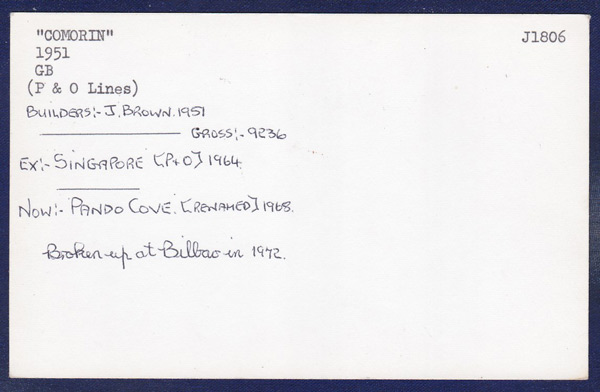 "COMORIN" J1806
1951
GB
(P & O Lines)
BUILDERS:- J. BROWN. 1951
GROSS:- 9236
EX:- SINGAPORE [P+O] 1964.
NOW:- PANDO COVE. [RENAMED] 1968.
Broken up at Bilbao in 1972.